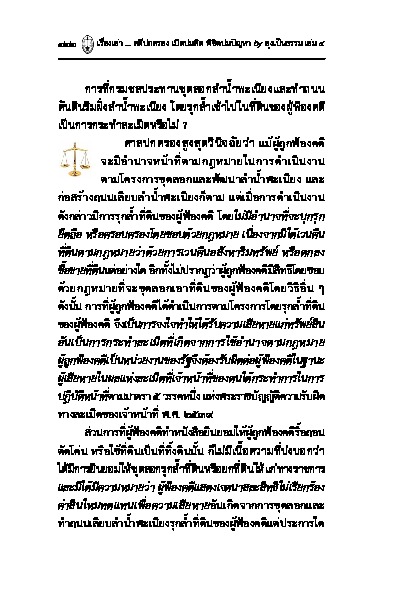 เรื่องเล่า ... คดีปกครอง เปิดปมคิด พิชิตปมปัญหา by ลุงเป็นธรรม เล่ม ๔
การที่กรมชลประทานขุดลอกลำน้ำพะเนียงและทำถนน
คันดินริมฝั่งลำน้ำพะเนียง โดยรุกล้ำเข้าไปในที่ดินของผู้ฟ้องคดี
เป็นการกระทำละเมิดหรือไม่ ?
ศาลปกครองสูงสุดวินิจฉัยว่า แม้ผู้ถูกฟ้องคดี
จะมีอำนาจหน้าที่ตามกฎหมายในการดำเนินงาน
ตามโครงการขุดลอกและพัฒนาลำน้ำพะเนียง และ
ก่อสร้างถนนเลียบลำน้ำพะเนียงก็ตาม แต่เมื่อการดำเนินงาน
ดังกล่าวมีการรุกล้ำที่ดินของผู้ฟ้องคดี โดยไม่มีอำนาจที่จะบุกรุก
ยึดถือ หรือครอบครองโดยชอบด้วยกฎหมาย เนื่องจากมิได้เวนคืน
ที่ดินตามกฎหมายว่าด้วยการเวนคืนอสังหาริมทรัพย์ หรือตกลง
ซื้อขายที่ดินแต่อย่างใด อีกทั้งไม่ปรากฏว่าผู้ถูกฟ้องคดีมีสิทธิโดยชอบ
ด้วยกฎหมายที่จะขุดลอกเอาที่ดินของผู้ฟ้องคดีโดยวิธีอื่น ๆ
ดังนั้น การที่ผู้ถูกฟ้องคดีได้ดำเนินการตามโครงการโดยรุกล้ำที่ดิน
ของผู้ฟ้องคดี จึงเป็นการจงใจทำให้ได้รับความเสียหายแก่ทรัพย์สิน
อันเป็นการกระทำละเมิดที่เกิดจากการใช้อำนาจตามกฎหมาย
ผู้ถูกฟ้องคดีเป็นหน่วยงานของรัฐจึงต้องรับผิดต่อผู้ฟ้องคดีในฐานะ
ผู้เสียหายในผลแห่งละเมิดที่เจ้าหน้าที่ของตนได้กระทำการในการ
ปฏิบัติหน้าที่ตามมาตรา ๕ วรรคหนึ่ง แห่งพระราชบัญญัติความรับผิด
ทางละเมิดของเจ้าหน้าที่ พ.ศ. ๒๕๓๙
ส่วนการที่ผู้ฟ้องคดีทำหนังสือยินยอมให้ผู้ถูกฟ้องคดีรื้อถอน
ตัดโค่น หรือใช้ที่ดินเป็นที่ทิ้งดินนั้น ก็ไม่มีเนื้อความที่บ่งบอกว่า
ได้มีการยินยอมให้ขุดลอกรุกล้ำที่ดินหรือยกที่ดินให้แก่ทางราชการ
และมิได้มีความหมายว่า ผู้ฟ้องคดีแสดงเจตนาสละสิทธิไม่เรียกร้อง
ค่าสินไหมทดแทนเพื่อความเสียหายอันเกิดจากการขุดลอกและ
ทำถนนเลียบลำน้ำพะเนียงรุกล้ำที่ดินของผู้ฟ้องคดีแต่ประการใด